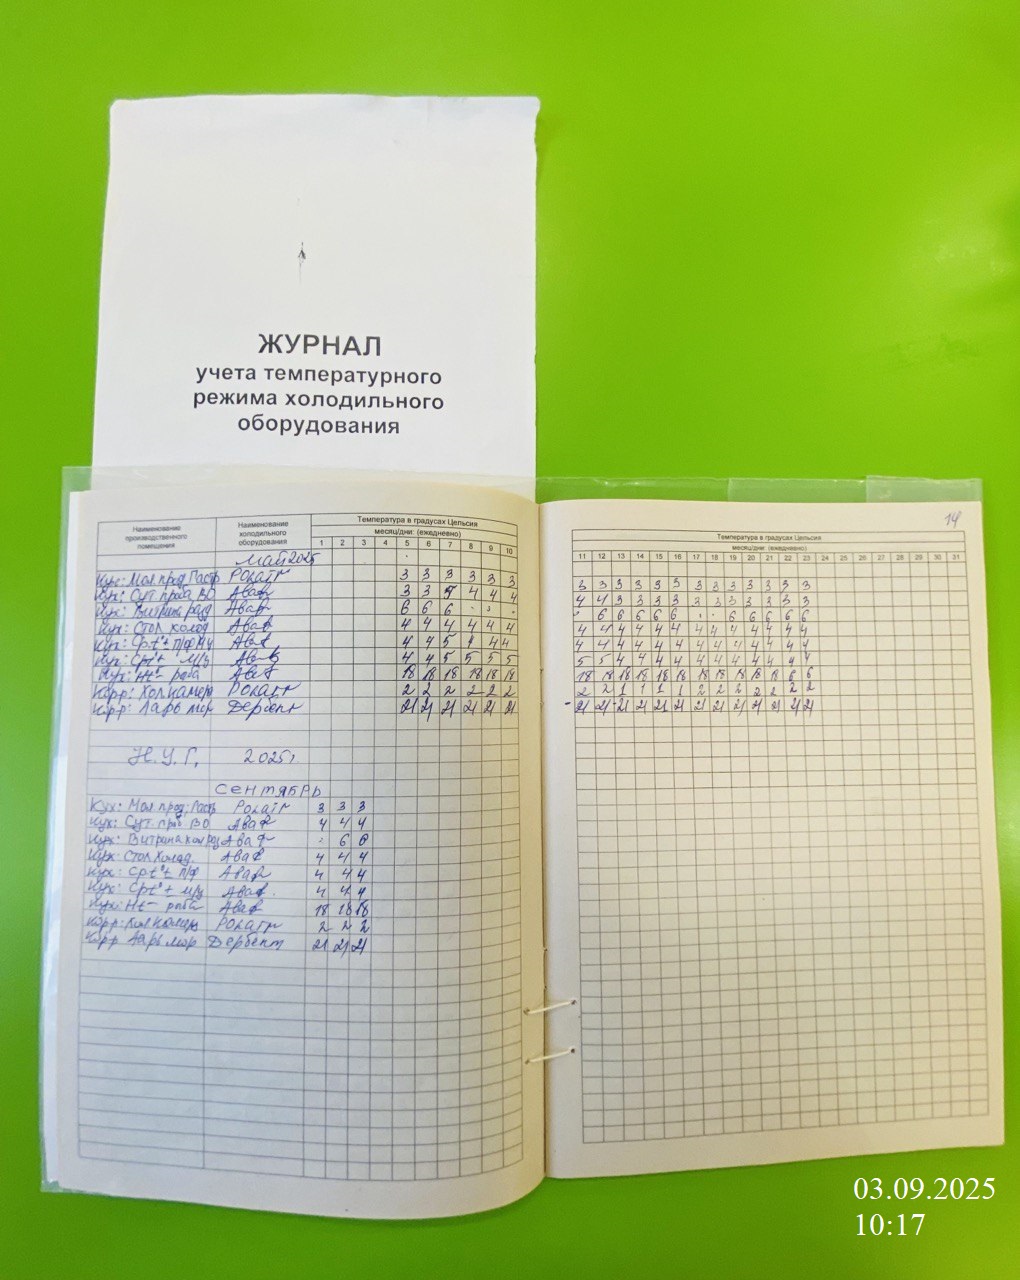 ЖУРНАЛ
учета температурного
режима холодильного
оборудования
14
Наименование производственного помещения Наименование холодильного оборудования Температура в градусах Цельсия
месяц/дни: (ежедневно)
1 2 3 4 5 6 7 8 9 10
май 2025
Кух: Мол прод Гастр 3 3 3 3 3 3
Кух: Сут проба ВО Аваф 3 3 4 4 4
Кух: Аваф 6 6 6
Кух: Стол холод Аваф 4 4 4 4 4 4
Кух: Аваф 4 4 5 4 4 4
Кух: Аваф 4 4 5 5 5 5
Кух: Аваф 18 18 18 18 18 18
Корр: Хол камера 2 2 2 2 2 2
Корр: Ларь мор Дербент 21 21 21 21 21 21
Н.У.Г. 2025г
сентябрь
Кух: Мол прод: Гастр 3 3 3
Кух: Сут проб ВО Аваф 4 4 4
Кух: Витрина Аваф 6 6
Кух: Стол Холод. Аваф 4 4 4
Кух: п/ф Аваф 4 4 4
Кух: Аваф. 4 4 4
Кух: Аваф 18 18 18
Корр: Хол камера 2 2 2
Корр Ларь мор Дербент 21 21 21
Температура в градусах Цельсия
месяц/дни: (ежедневно)
11 12 13 14 15 16 17 18 19 20 21 22 23 24 25 26 27 28 29 30 31
3 3 3 3 3 5 3 3 3 3 3 3 3
4 4 3 3 3 3 3 3 3 3 3 3 3
6 6 6 6 6 6 6 6 6 6
4 4 4 4 4 4 4 4 4 4 4 4 4
4 4 4 4 4 4 4 4 4 4 4 4 4
5 5 4 4 4 4 4 4 4 4 4 4 4
18 18 18 18 18 18 18 18 18 18 18 6 6
2 2 1 1 1 1 2 2 2 2 2 2 2
21 21 21 21 21 21 21 21 21 21 21 21 21
03.09.2025
10:17